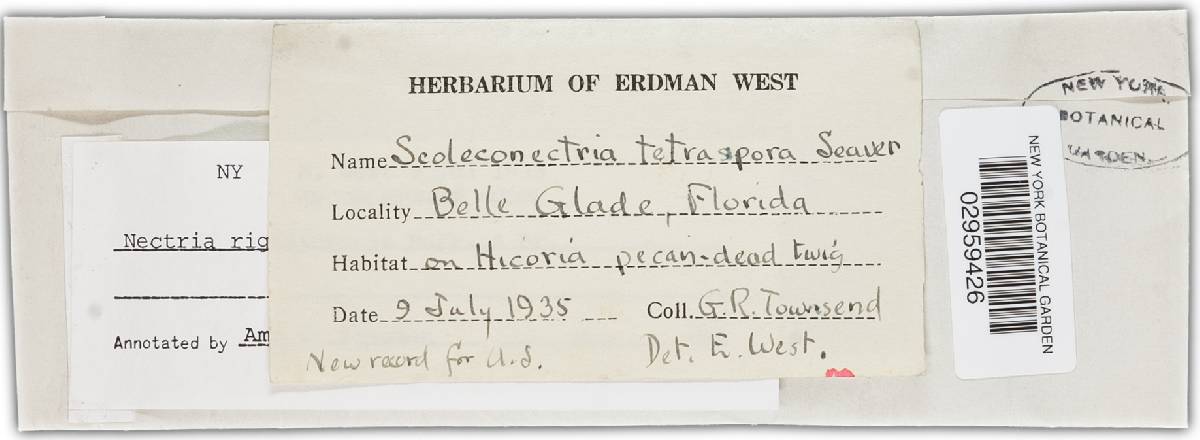 HERBARIUM OF ERDMAN WEST
Name Scoleconectria tetraspora Seaver
Locality Belle Glade, Florida
Habitat on Hicoria pecan-dead twig
Date 9 July 1935 Coll. G.R. Townsend
New record for U.S. Det. E. West.
NY
Nectria rig
Annotated by Am
NEW YORK
BOTANICAL
GARDEN
NEW YORK BOTANICAL GARDEN
02959426